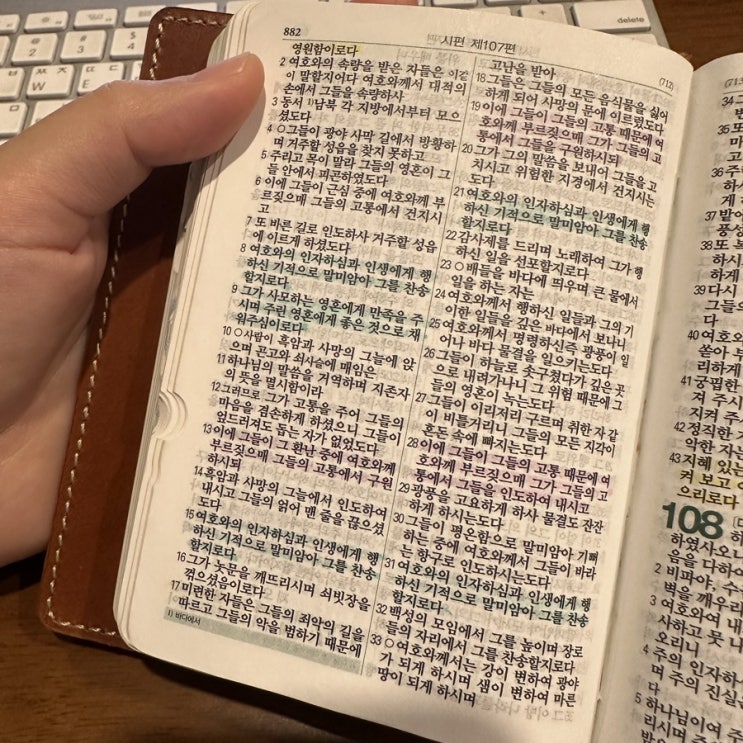 delete
882
시편 제107편
(712)
영원함이로다
2 여호와의 속량을 받은 자들은 이같
이 말할지어다 여호와께서 대적의
손에서 그들을 속량하사
3 동서 1)남북 각 지방에서부터 모으
셨도다
4 ○그들이 광야 사막 길에서 방황하
며 거주할 성읍을 찾지 못하고
5 주리고 목이 말라 그들의 영혼이 그
들 안에서 피곤하였도다
6 이에 그들이 근심 중에 여호와께 부
르짖으매 그들의 고통에서 건지시
고
7 또 바른 길로 인도하사 거주할 성읍
에 이르게 하셨도다
8 여호와의 인자하심과 인생에게 행
하신 기적으로 말미암아 그를 찬송
할지로다
9 그가 사모하는 영혼에게 만족을 주
시며 주린 영혼에게 좋은 것으로 채
워주심이로다
10 ○사람이 흑암과 사망의 그늘에 앉
으며 곤고와 쇠사슬에 매임은
11 하나님의 말씀을 거역하며 지존자
의 뜻을 멸시함이라
12 그러므로 그가 고통을 주어 그들의
마음을 겸손하게 하셨으니 그들이
엎드러져도 돕는 자가 없었도다
13 이에 그들이 그 환난 중에 여호와께
부르짖으매 그들의 고통에서 구원
하시되
14 흑암과 사망의 그늘에서 인도하여
내시고 그들의 얽어 맨 줄을 끊으셨
도다
15 여호와의 인자하심과 인생에게 행
하신 기적으로 말미암아 그를 찬송
할지로다
16 그가 놋문을 깨뜨리시며 쇠빗장을
꺾으셨음이로다
17 미련한 자들은 그들의 죄악의 길을
따르고 그들의 악을 범하기 때문에
1) 바다에서
고난을 받아
18 그들은 그들의 모든 음식물을 싫어
하게 되어 사망의 문에 이르렀도다
19 이에 그들이 그들의 고통 때문에 여
호와께 부르짖으매 그가 그들의 고
통에서 그들을 구원하시되
20 그가 그의 말씀을 보내어 그들을 고
치시고 위험한 지경에서 건지시는
도다
21 여호와의 인자하심과 인생에게 행
하신 기적으로 말미암아 그를 찬송
할지로다
22 감사제를 드리며 노래하여 그가 행
하신 일을 선포할지로다
23 ○배들을 바다에 띄우며 큰 물에서
일을 하는 자는
24 여호와께서 행하신 일들과 그의 기
이한 일들을 깊은 바다에서 보나니
25 여호와께서 명령하신즉 광풍이 일
어나 바다 물결을 일으키는도다
26 그들이 하늘로 솟구쳤다가 깊은 곳
으로 내려가나니 그 위험 때문에 그
들의 영혼이 녹는도다
27 그들이 이리저리 구르며 취한 자 같
이 비틀거리니 그들의 모든 지각이
혼돈 속에 빠지는도다
28 이에 그들이 그들의 고통 때문에 여
호와께 부르짖으매 그가 그들의 고
통에서 그들을 인도하여 내시고
29 광풍을 고요하게 하사 물결도 잔잔
하게 하시는도다
30 그들이 평온함으로 말미암아 기뻐
하는 중에 여호와께서 그들이 바라
는 항구로 인도하시는도다
31 여호와의 인자하심과 인생에게 행
하신 기적으로 말미암아 그를 찬송
할지로다
32 백성의 모임에서 그를 높이며 장로
들의 자리에서 그를 찬송할지로다
33 ○여호와께서는 강이 변하여 광야
가 되게 하시며 샘이 변하여 마른
땅이 되게 하시며
34 그
변
35 또
마
고
36 주
하
게
37 밭에
풍성
38 또 복
하시
하게
39 다시
그들의
다
40 여호와
쏟아 부
리하게
41 궁핍한
져 주시
지켜 주
42 정직한
악한 자는
43 지혜 있는
켜 보고
으리로다
108 하
하였사오니
음을 다하여
2 비파야, 수
벽을 깨우리
3 여호와여 내
사하고 뭇 나
오리니
4 주의 인자하
며 주의 진실은
다
5 하나님이여 주
리시며 주의